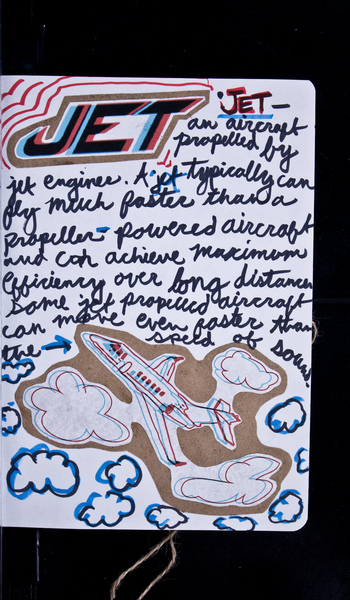 JET
'JET-
an aircraft
propelled by
jet engines. A jet typically can
fly much faster than a
propeller-powered aircraft
and can achieve maximum
efficiency over long distances
Some jet propelled aircraft
can move even faster than
the → speed of sound.